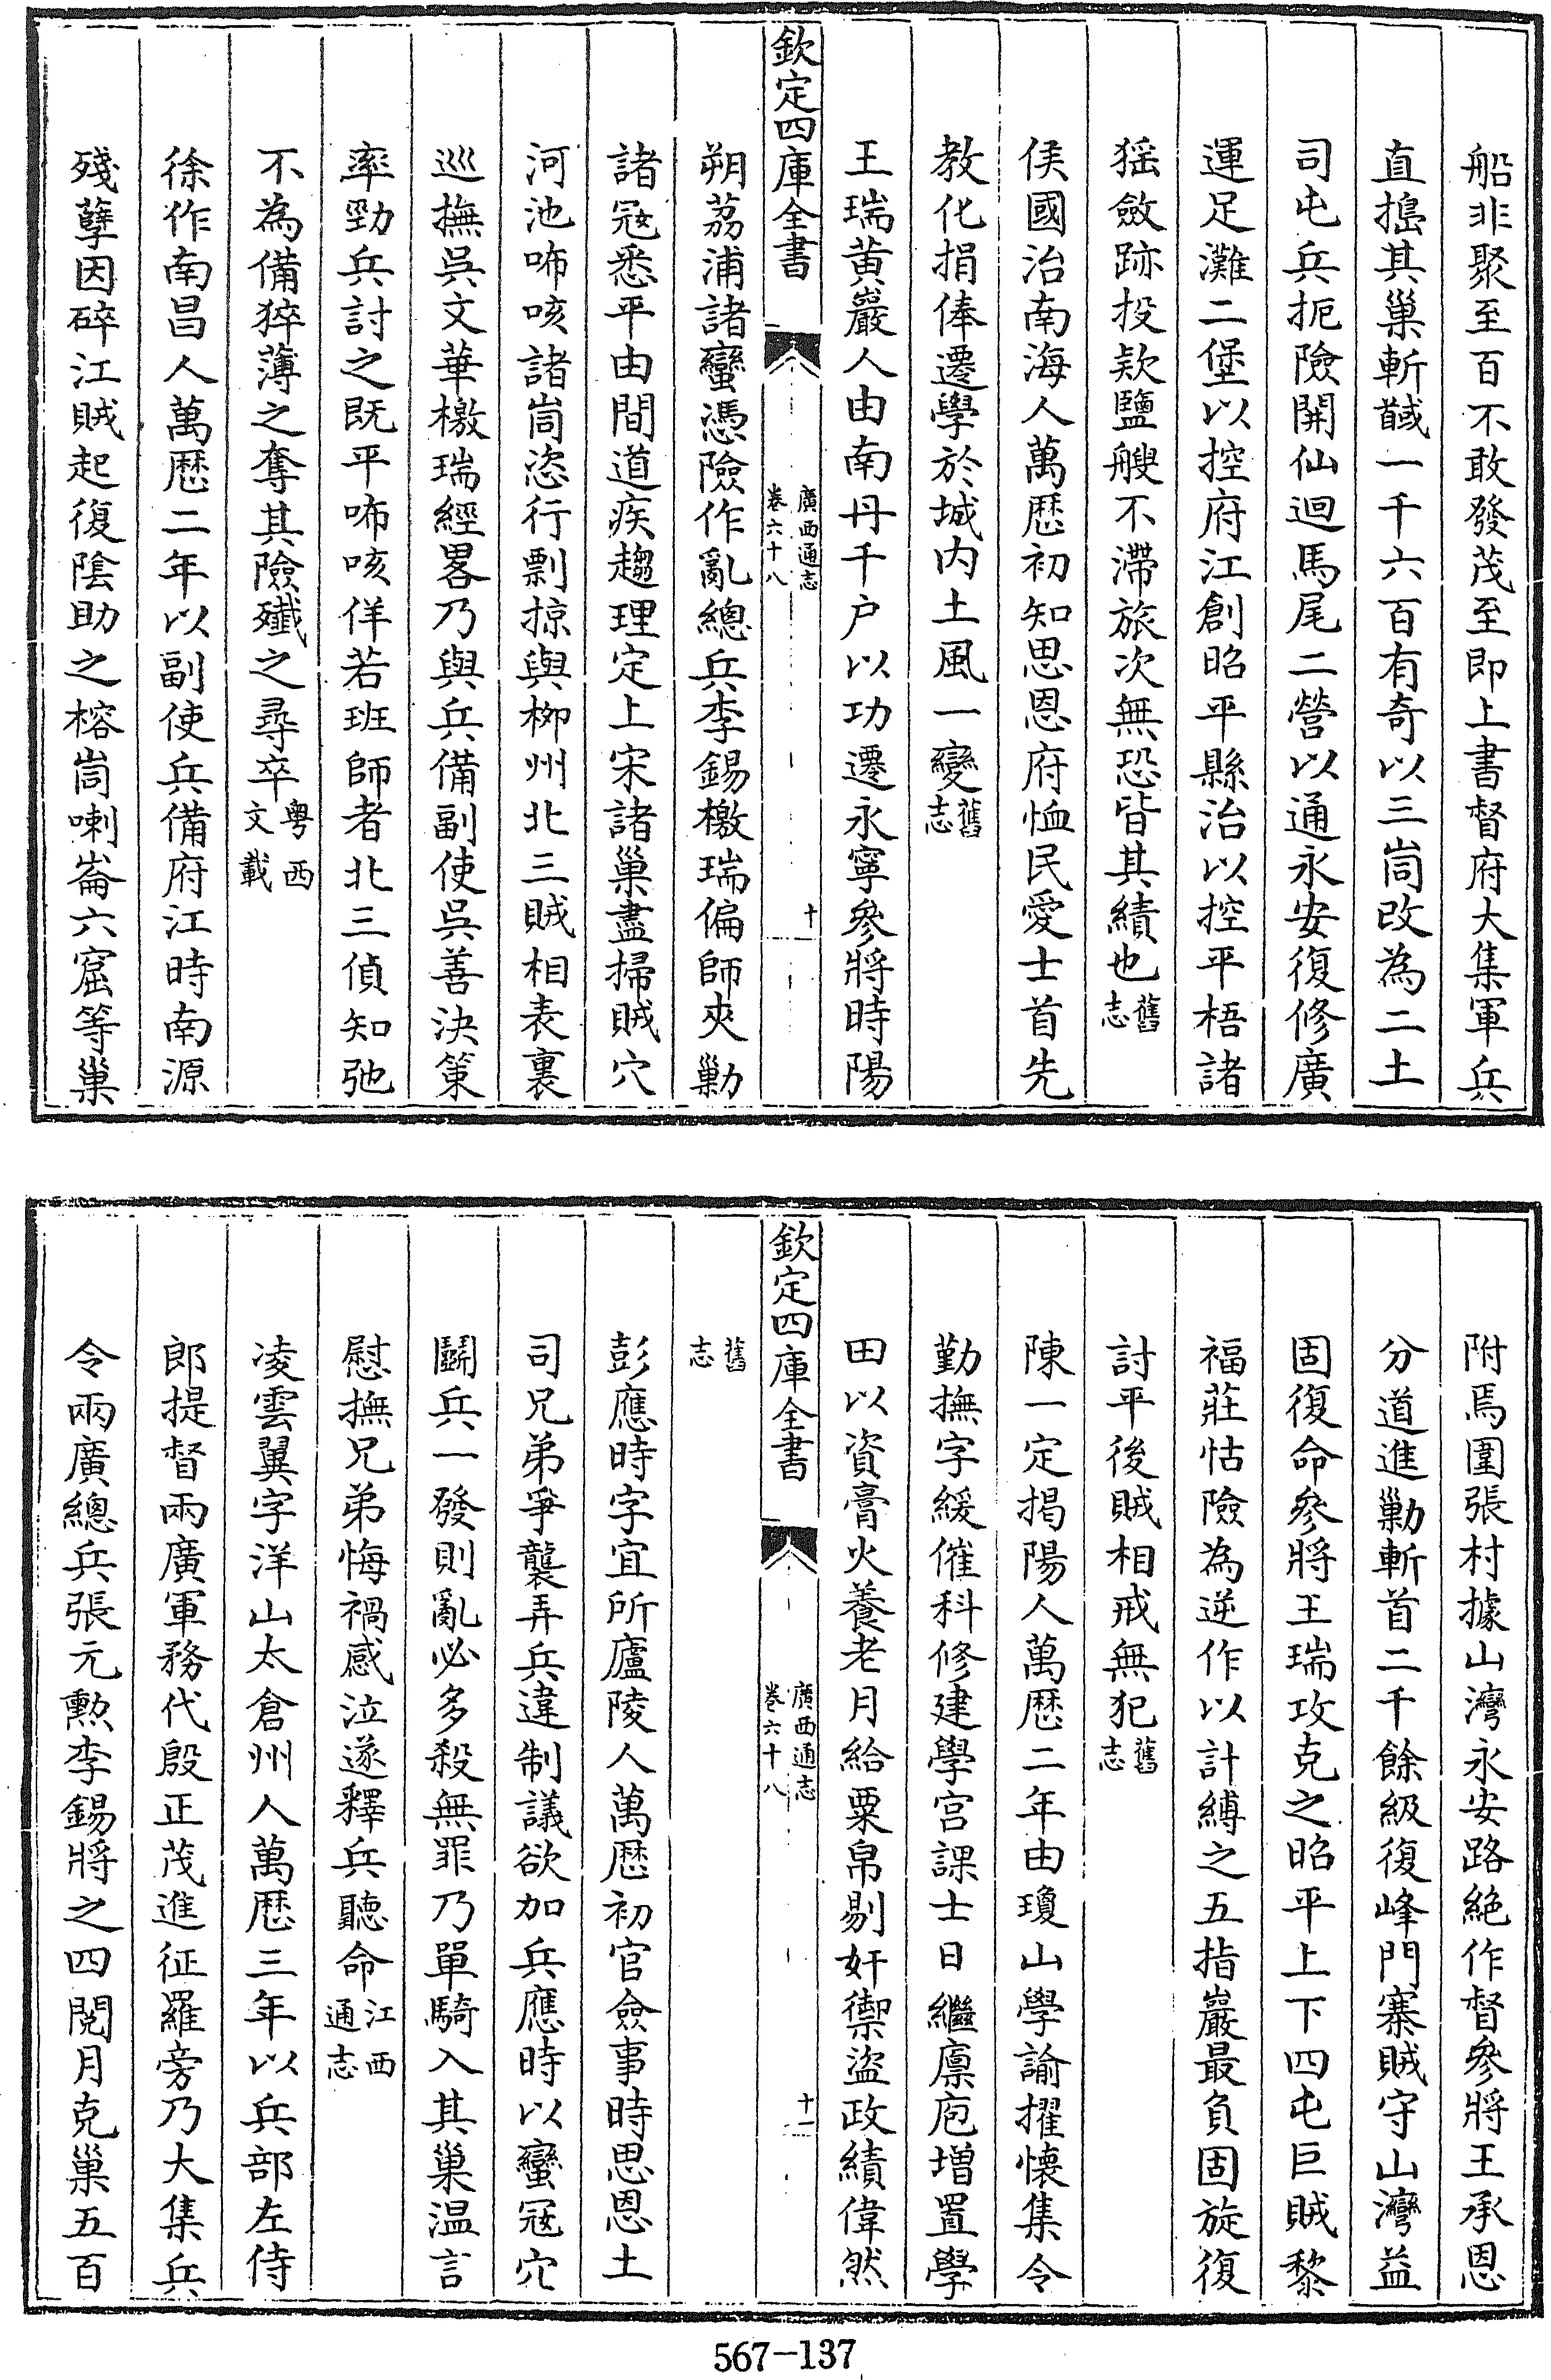 船非聚至百不敢發茂至即上書督府大集軍兵
直搗其巢斬馘一千六百有奇以三峝改為二土
司屯兵扼險開仙迴馬尾二營以通永安復修廣
運足灘二堡以控府江創昭平縣治以控平梧諸
猺斂跡投欵鹽艘不滯旅次無恐皆其績也舊志
侯國治南海人萬厯初知思恩府恤民愛士首先
教化捐俸遷學於城内土風一變舊志
王瑞黄巖人由南丹千户以功遷永寧參將時陽
欽定四庫全書
廣西通志
卷六十八
十
朔荔浦諸蠻憑險作亂總兵李錫檄瑞偏師夾勦
諸冦悉平由間道疾趨理定上宋諸巢盡掃賊穴
河池咘咳諸峝恣行剽掠與柳州北三賊相表裏
巡撫呉文華檄瑞經畧乃與兵備副使呉善決策
率勁兵討之既平咘咳佯若班師者北三偵知弛
不為備猝薄之奪其險殱之尋卒粤西文載
徐作南昌人萬厯二年以副使兵備府江時南源
殘孽因碎江賊起復陰助之榕峝喇崙六窟等巢
附焉圍張村據山灣永安路絶作督參將王承恩
分道進勦斬首二千餘級復峰門寨賊守山灣益
固復命參將王瑞攻克之昭平上下四屯巨賊黎
福莊怙險為逆作以計縛之五指巖最負固旋復
討平後賊相戒無犯舊志
陳一定揭陽人萬厯二年由瓊山學諭擢懷集令
勤撫字緩催科修建學宫課士日繼廪庖増置學
田以資膏火養老月給粟帛剔奸禦盜政績偉然
欽定四庫全書
廣西通志
卷六十八
十一
舊志
彭應時字宜所廬陵人萬厯初官僉事時思恩土
司兄弟爭襲弄兵違制議欲加兵應時以蠻冦穴
鬭兵一發則亂必多殺無罪乃單騎入其巢温言
慰撫兄弟悔禍感泣遂釋兵聽命江西通志
凌雲翼字洋山太倉州人萬厯三年以兵部左侍
郎提督兩廣軍務代殷正茂進征羅旁乃大集兵
令兩廣總兵張元勲李錫將之四閲月克巢五百
567-137